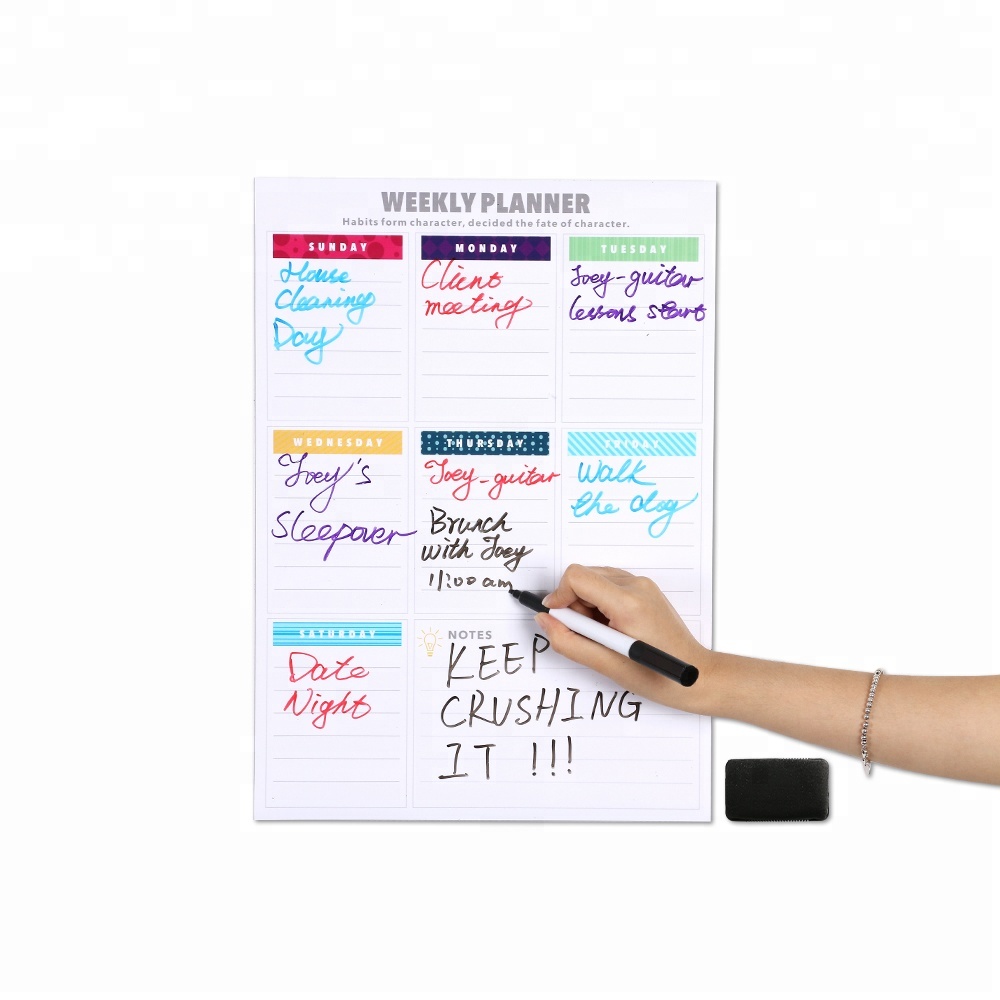 WEEKLY PLANNER
Habits form character, decided the fate of character.
SUNDAY
House
Cleaning
Day
MONDAY
Client
meeting
TUESDAY
Joey-guitar
lessons start
WEDNESDAY
Joey's
Sleepover
THURSDAY
Joey-guitar
Brunch
with Joey
11:00 am
FRIDAY
Walk
the dog
SATURDAY
Date
Night
NOTES
KEEP
CRUSHING
IT !!!